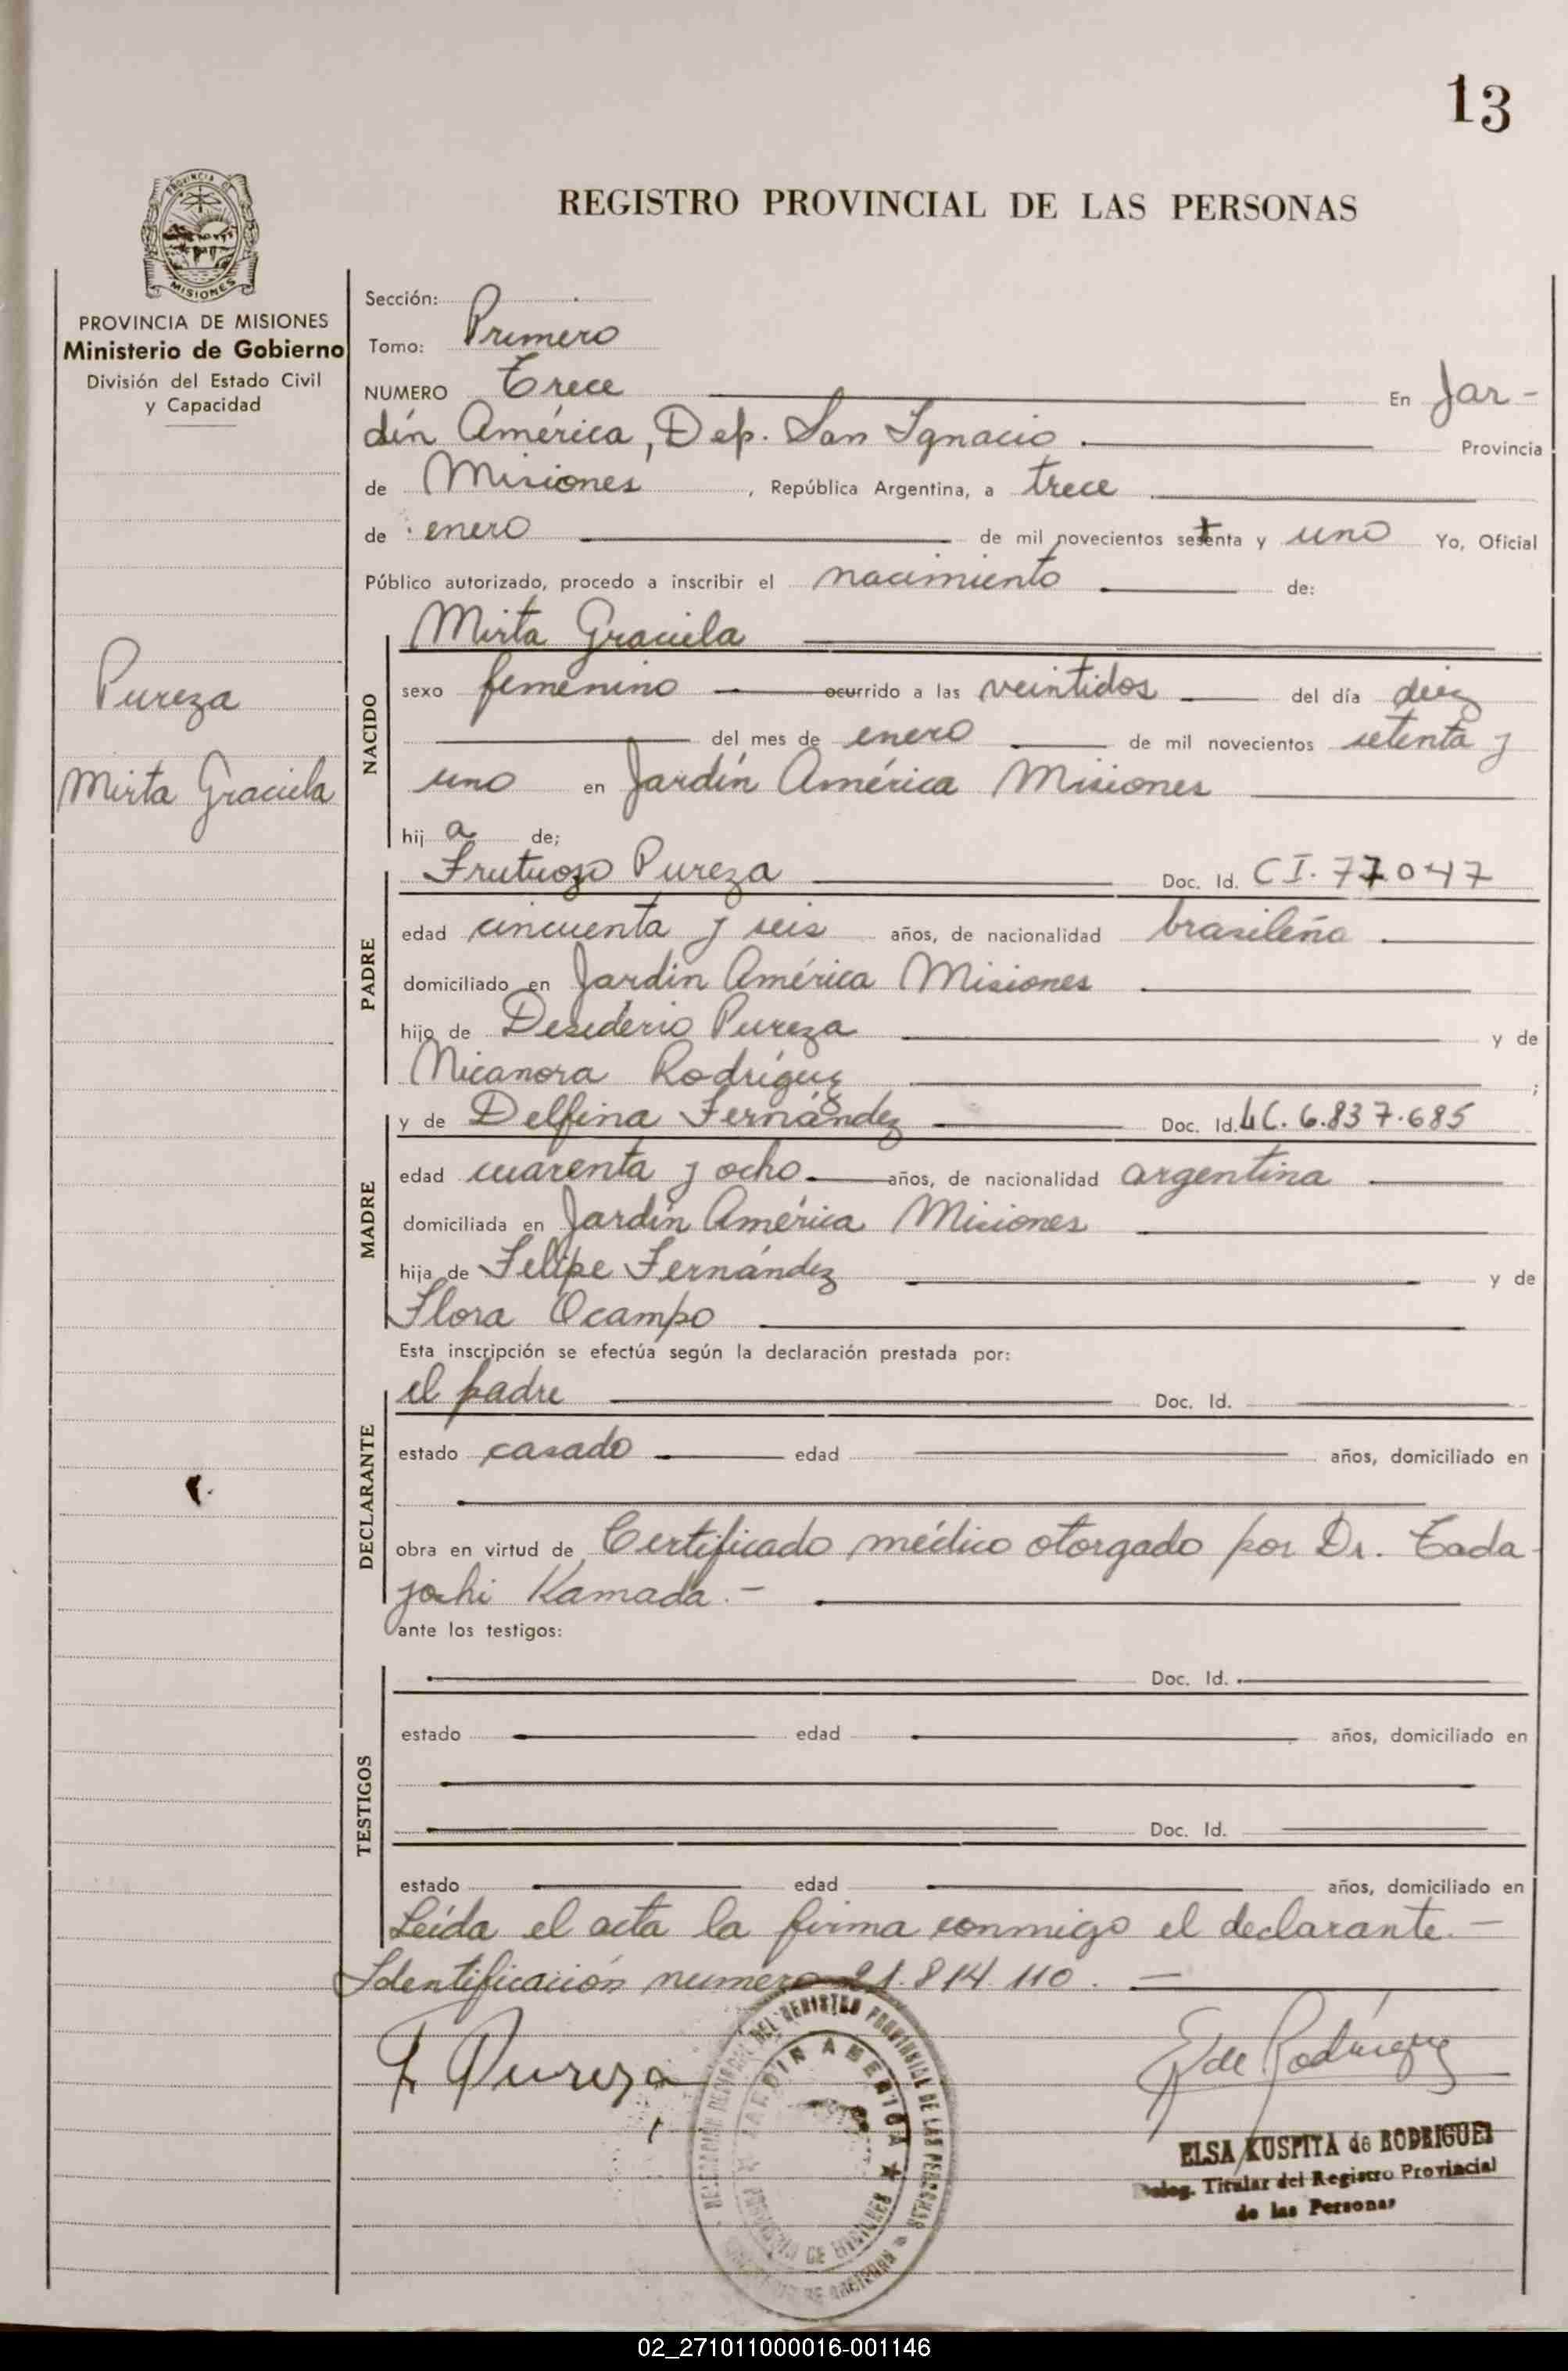 13
REGISTRO PROVINCIAL DE LAS PERSONAS
PROVINCIA DE
MISIONES
PROVINCIA DE MISIONES
Ministerio de Gobierno
División del Estado Civil
y Capacidad
Pureza
Mirta Graciela
Sección:
Tomo: Primero
NUMERO Trece En Jar-
dín América, Dep. San Ignacio. Provincia
de Misiones, República Argentina, a trece
de enero de mil novecientos setenta y uno Yo, Oficial
Público autorizado, procedo a inscribir el nacimiento de:
NACIDO
Mirta Graciela
sexo femenino ocurrido a las veintidos del día diez
del mes de enero de mil novecientos setenta y
uno en Jardín América Misiones
hij a de;
PADRE
Frutuozo Pureza Doc. Id. CI. 77.047
edad cincuenta y seis años, de nacionalidad brasileña
domiciliado en Jardin América Misiones
hijo de Desiderio Pureza y de
Nicanora Rodríguez ;
MADRE
y de Delfina Fernández Doc. Id. LC. 6.837.685
edad cuarenta y ocho años, de nacionalidad argentina
domiciliada en Jardín América Misiones
hija de Felipe Fernández y de
Flora Ocampo
Esta inscripción se efectúa según la declaración prestada por:
DECLARANTE
el padre Doc. Id.
estado casado edad años, domiciliado en
obra en virtud de Certificado médico otorgado por Dr. Tada-
yochi Kamada.-
ante los testigos:
TESTIGOS
Doc. Id.
estado edad años, domiciliado en
Doc. Id.
estado edad años, domiciliado en
Leída el acta la firma conmigo el declarante.-
Identificación numero 21.814.110.-
F Pureza
E de Rodríguez
DEL REGISTRO PROVINCIAL DE LAS PERSONAS
JARDIN AMERICA
PROVINCIA DE MISIONES
ELSA KUSPITA de RODRIGUEZ
Deleg. Titular del Registro Provincial
de las Personas
02_271011000016-001146